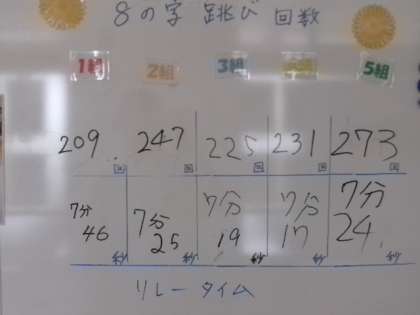 8の字 跳び 回数
1組 2組 3組 4組 5組
209 247 225 231 273
回 回 回 回 回
7分 7分 7分 7分 7分
46 25 19 17 24
秒 秒 秒 秒 秒
リレータイム